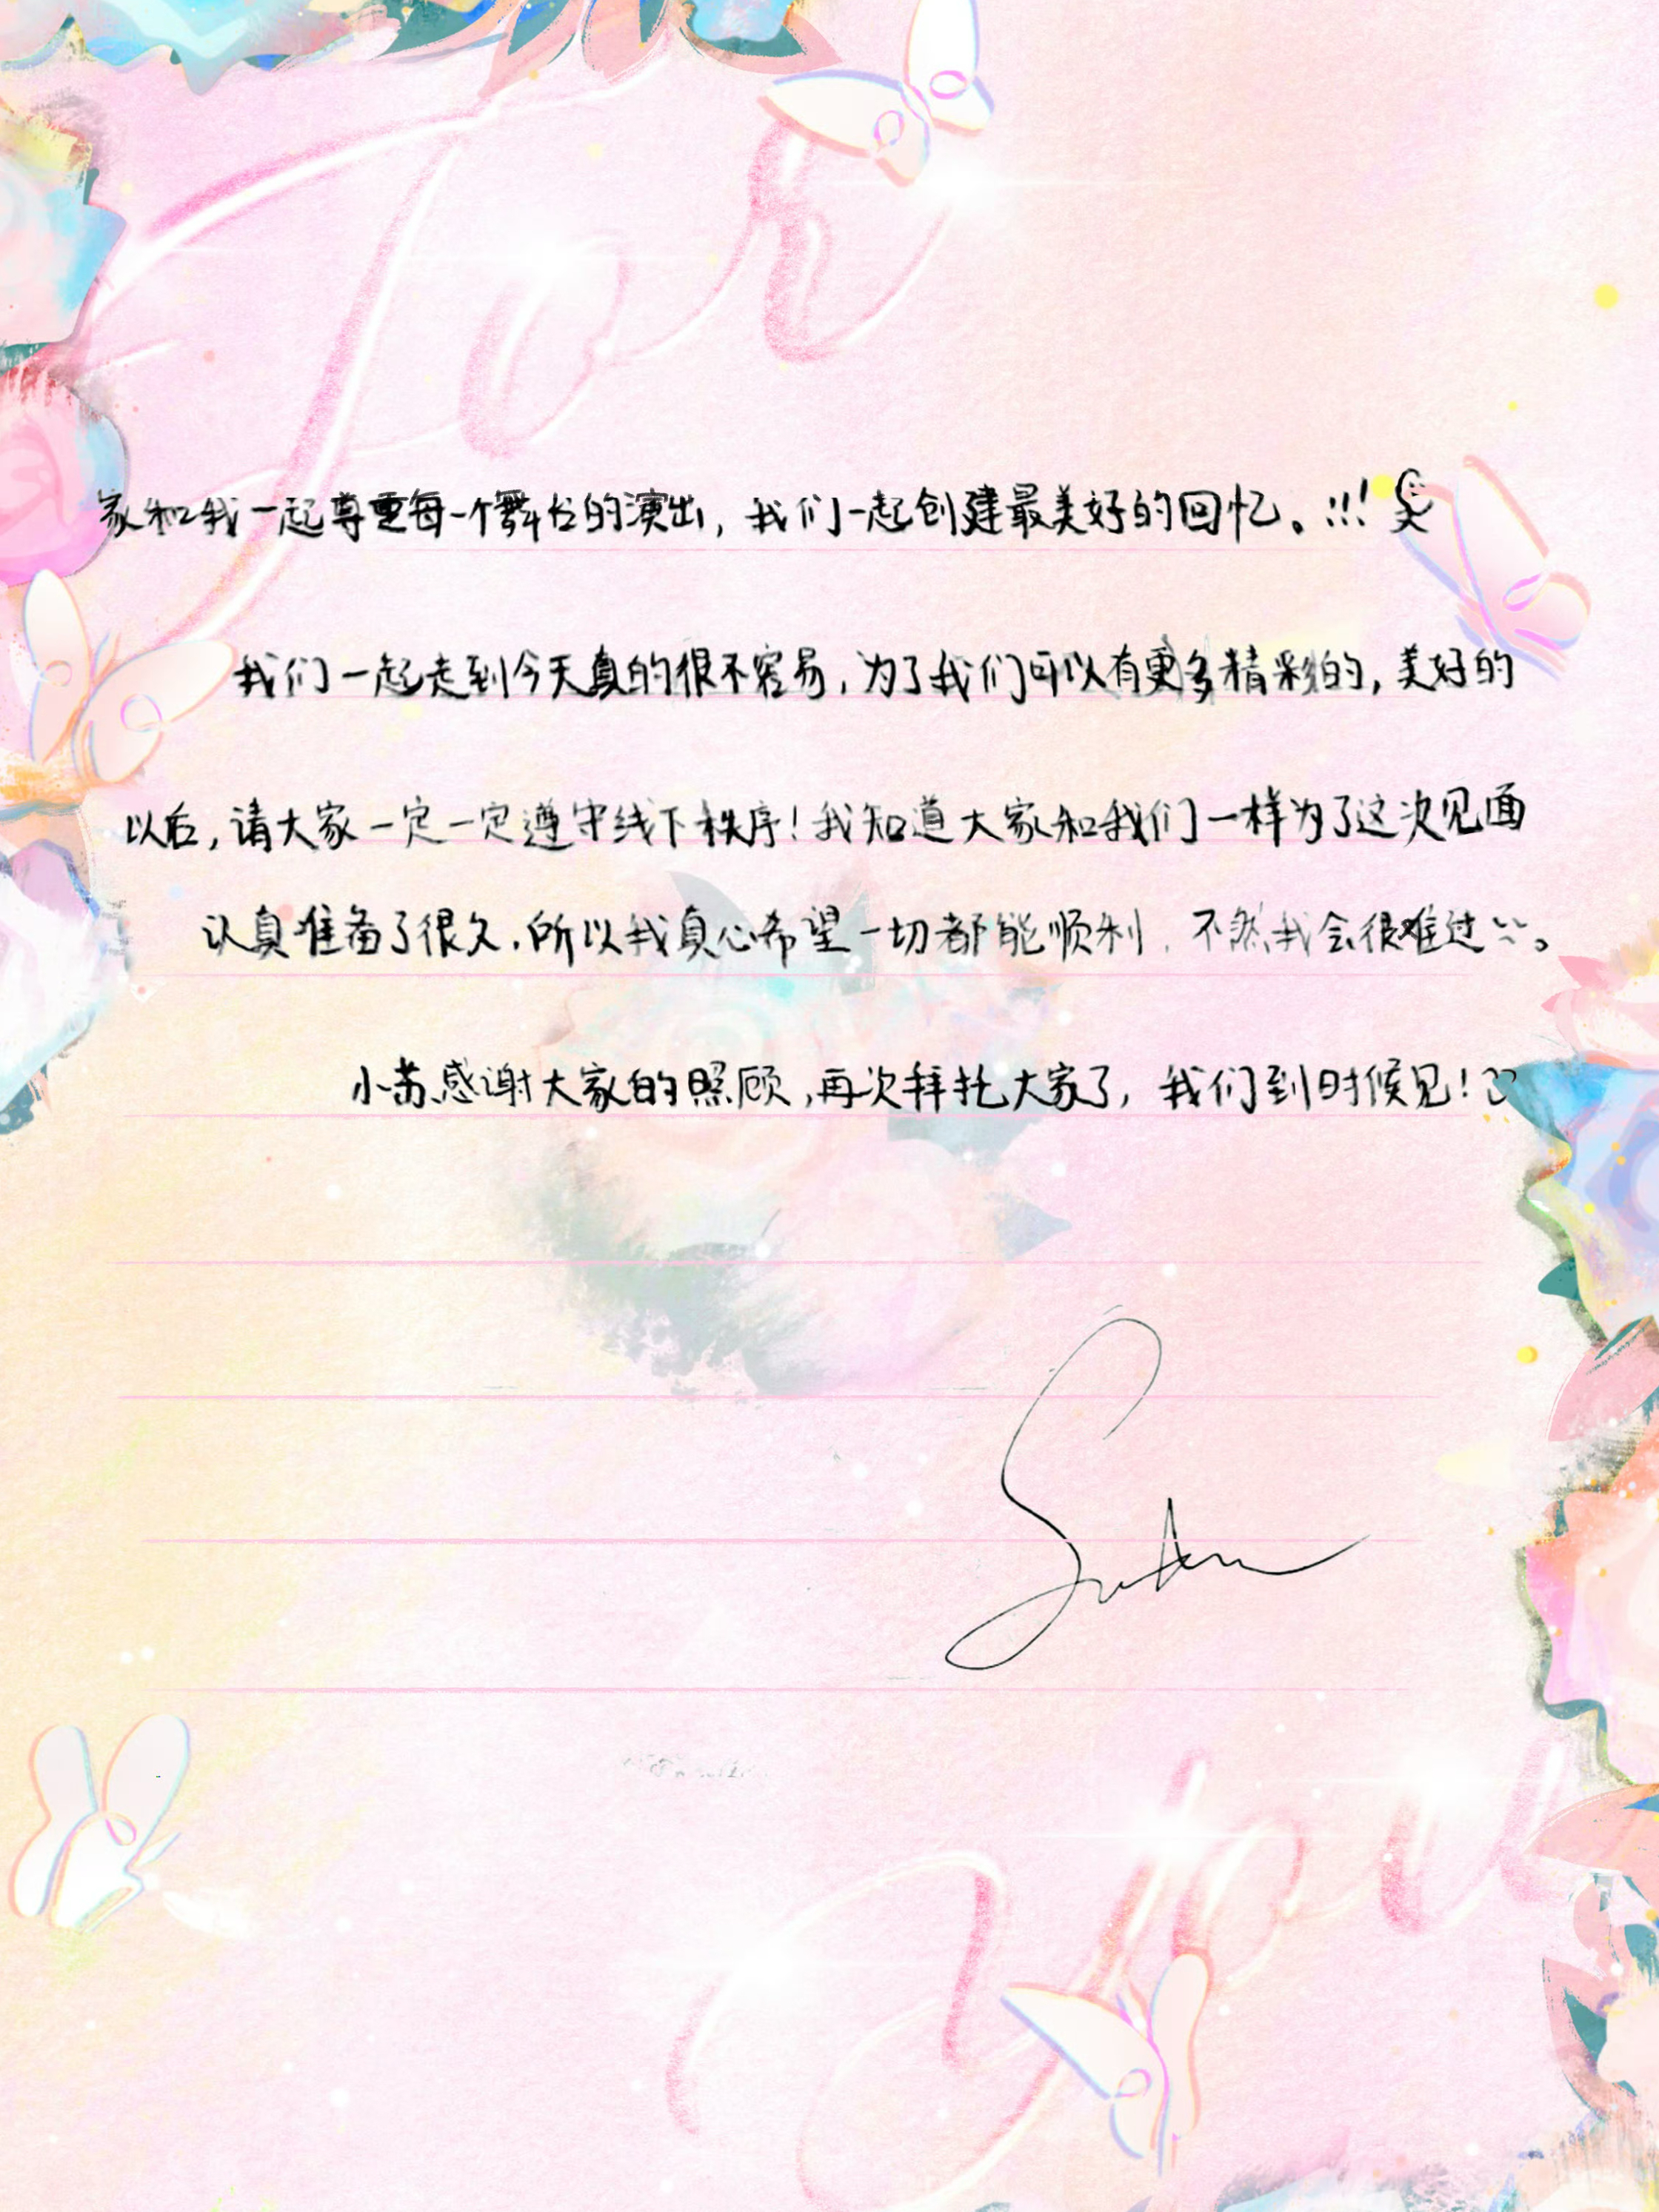 For
家和我一起尊重每一个舞台的演出，我们一起创建最美好的回忆。!!!
我们一起走到今天真的很不容易，为了我们可以有更多精彩的，美好的
以后，请大家一定一定遵守线下秩序！我知道大家和我们一样为了这次见面
认真准备了很久，所以我真心希望一切都能顺利，不然我会很难过。
小苏感谢大家的照顾，再次拜托大家了，我们到时候见！
You